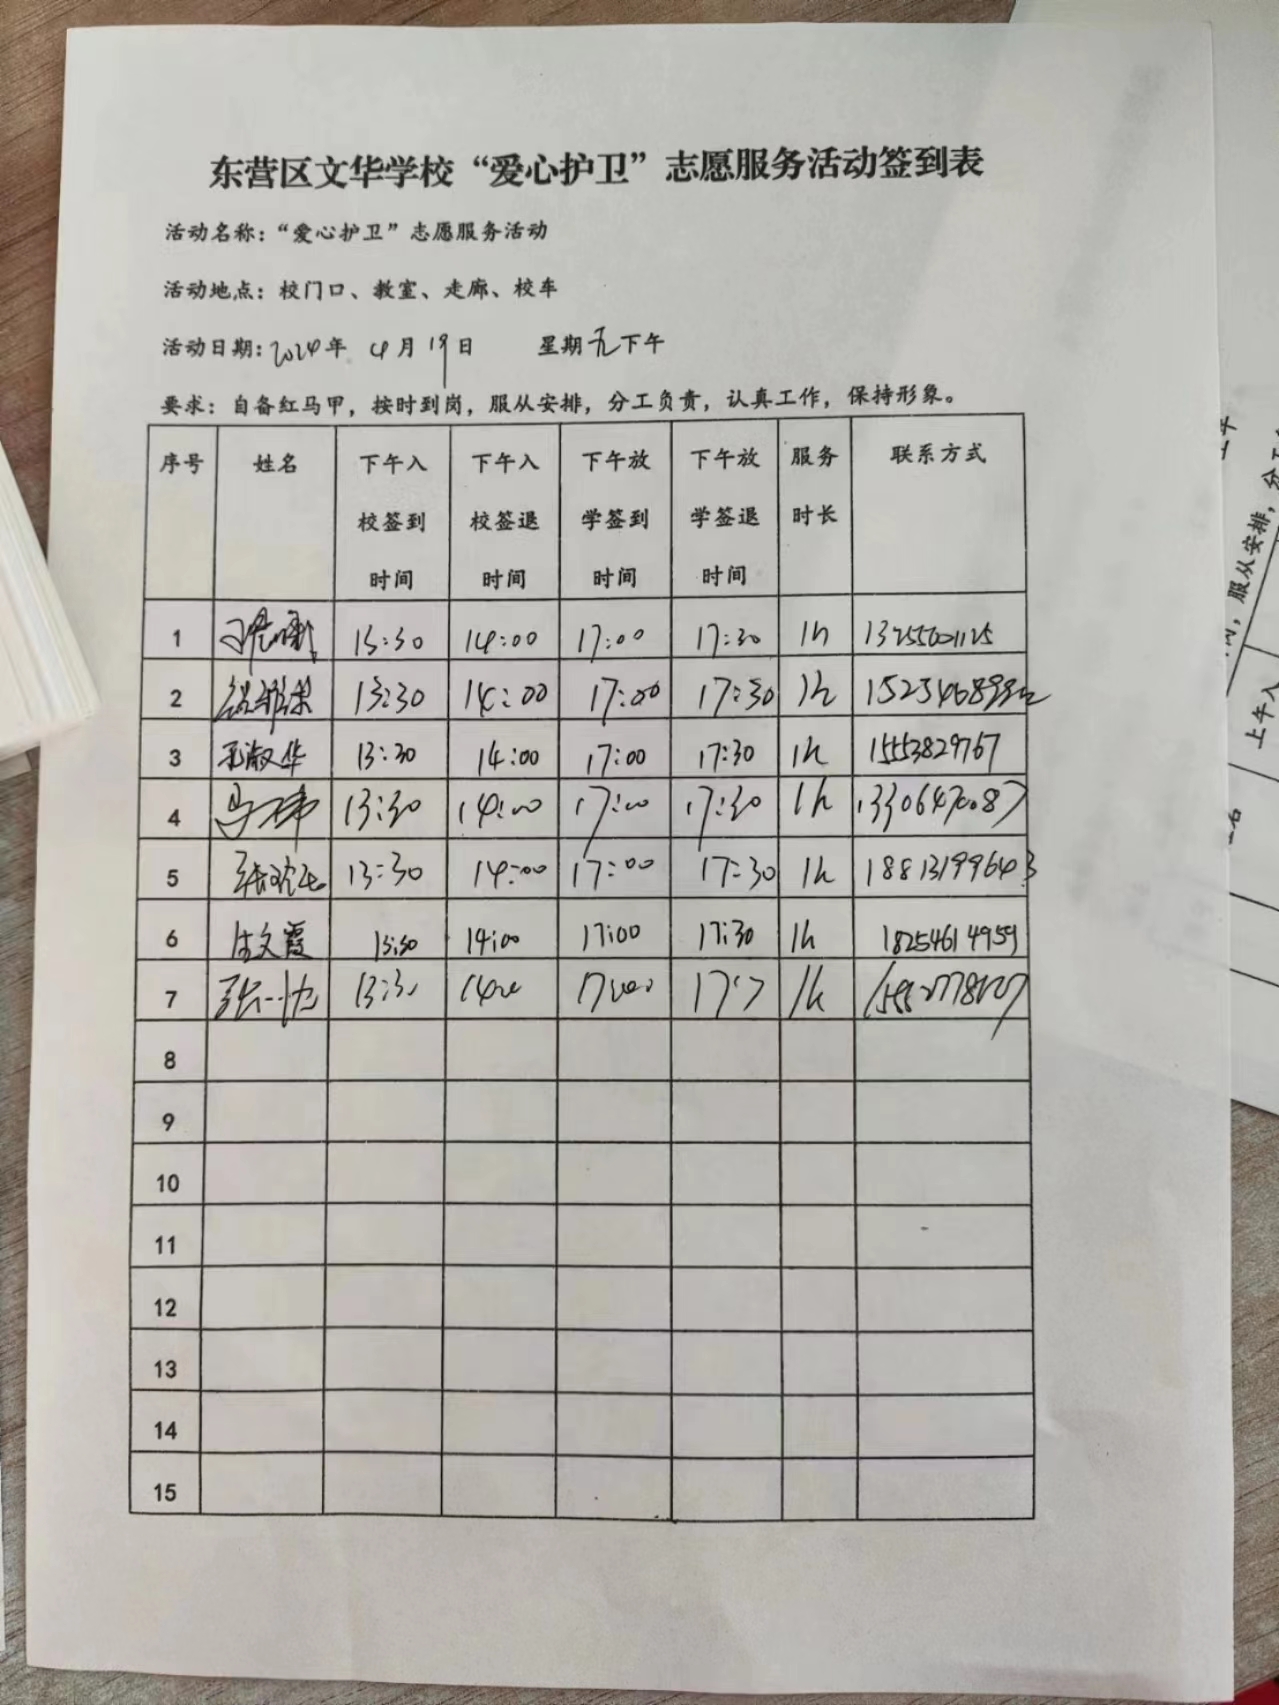 东营区文华学校“爱心护卫”志愿服务活动签到表
活动名称：“爱心护卫”志愿服务活动
活动地点：校门口、教室、走廊、校车
活动日期：2024年 4月19日 星期五下午
要求：自备红马甲，按时到岗，服从安排，分工负责，认真工作，保持形象。
序号 姓名 下午入校签到时间 下午入校签退时间 下午放学签到时间 下午放学签退时间 服务时长 联系方式
1 13:30 14:00 17:00 17:30 1h
2 13:30 14:00 17:00 17:30 1h
3 13:30 14:00 17:00 17:30 1h 1553829767
4 13:30 14:00 17:00 17:30 1h 13306470087
5 13:30 14:00 17:00 17:30 1h 18813199643
6 文霞 13:30 14:00 17:00 17:30 1h 18254614959
7 张一 1h
8
9
10
11
12
13
14
15
服从安排，
上午入